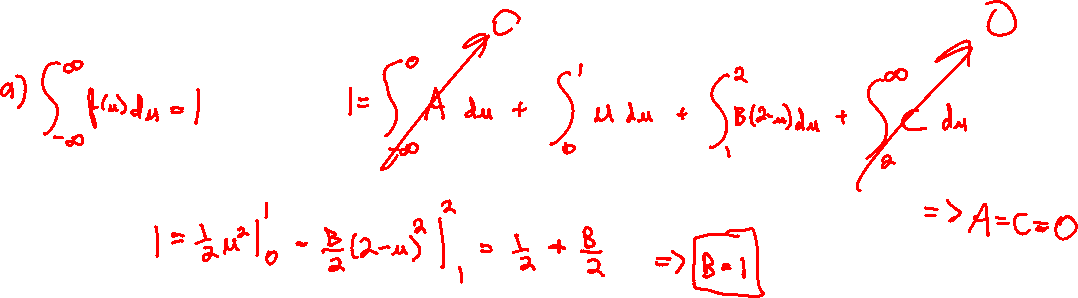 a) ∫_{-∞}^{∞} f(u) du = 1    1 = ∫_{-∞}^{0} A du + ∫_{0}^{1} u du + ∫_{1}^{2} B(2-u) du + ∫_{2}^{∞} C du
0    0
=> A=C=0
1 = 1/2 u² |_{0}^{1} - B/2 (2-u)² |_{1}^{2} = 1/2 + B/2 => B=1